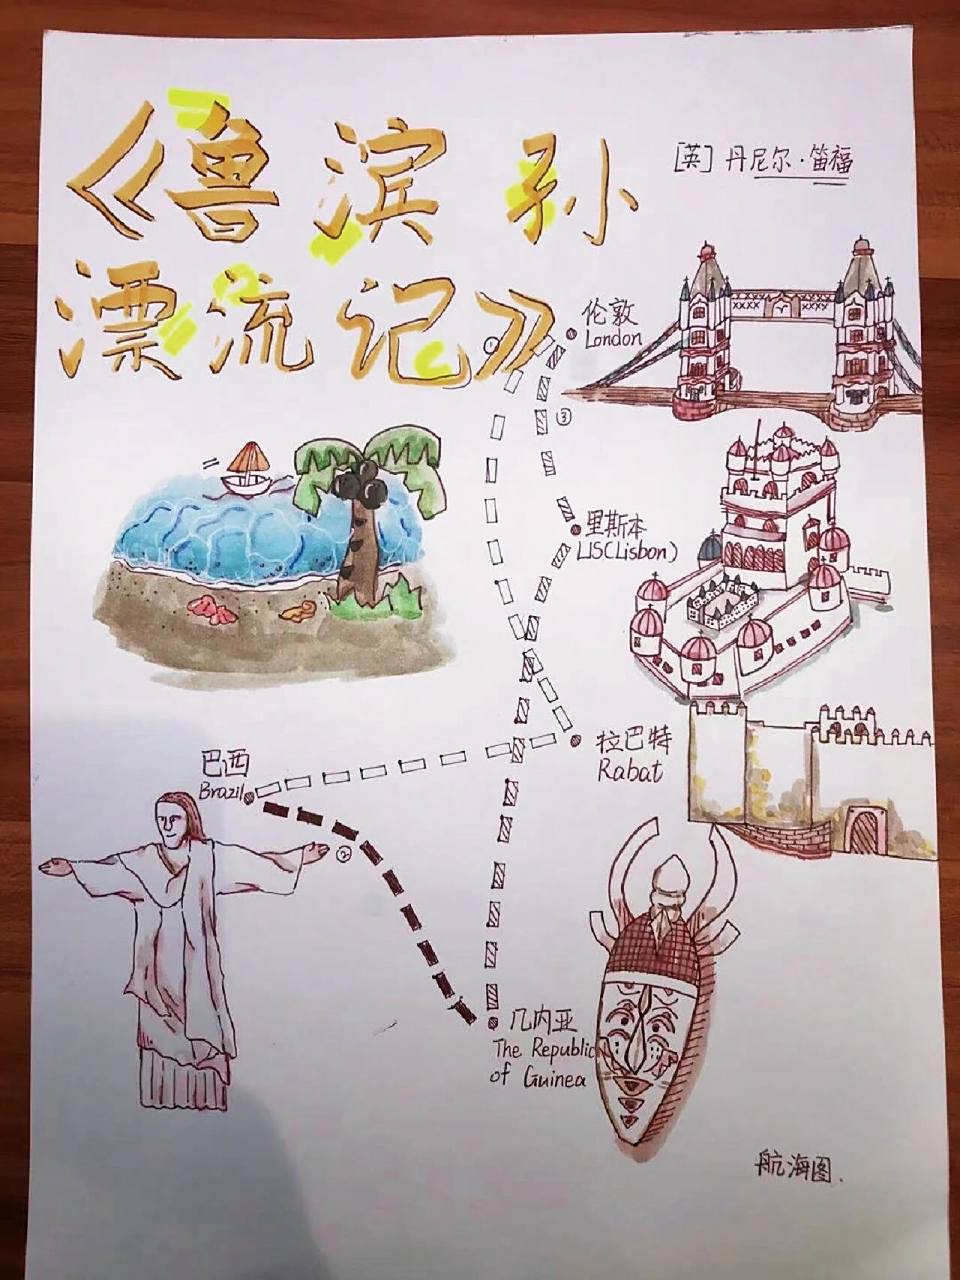 《鲁滨孙
漂流记》
[英] 丹尼尔·笛福
伦敦
London
①
③
里斯本
LIS(Lisbon)
拉巴特
Rabat
巴西
Brazil
②
几内亚
The Republic
of Guinea
航海图.